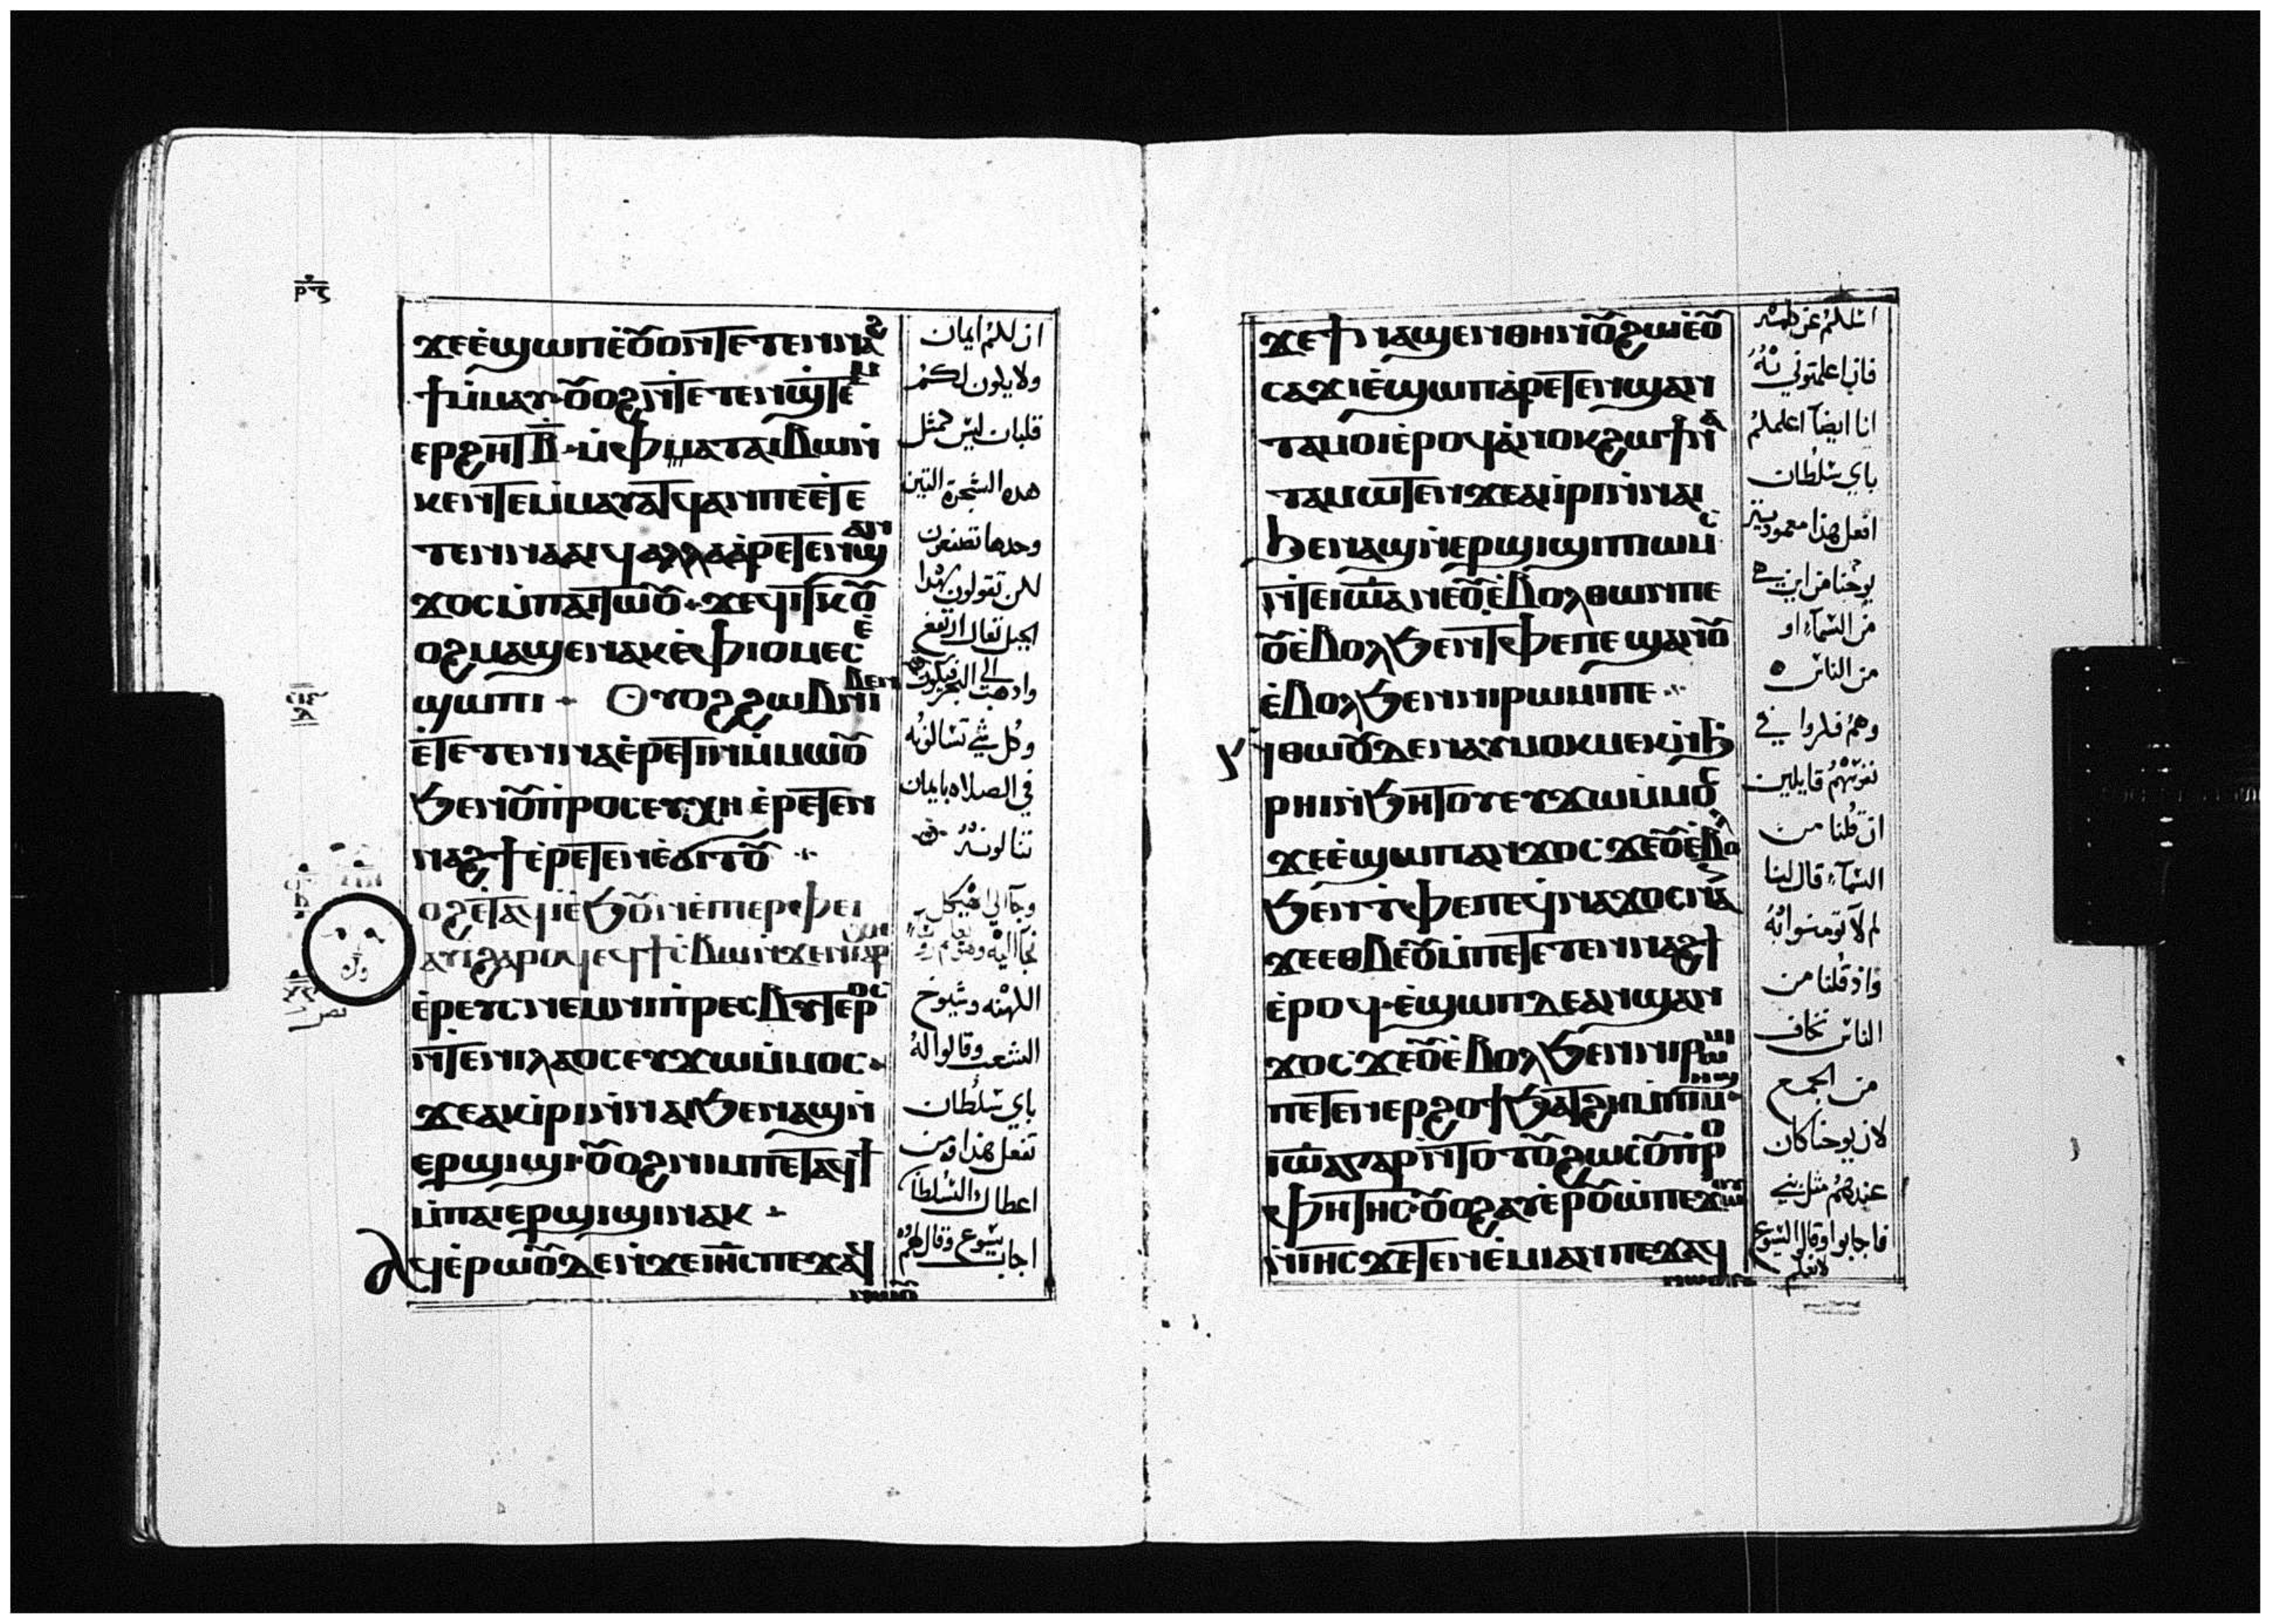 ϫⲉⲉ̇ϣⲱⲡⲉ̇ⲟ̅ⲟⲛⲧⲉⲧⲉⲛⲛⲁϩ
ϯⲙ̇ⲙⲁⲩ·ⲟ̅ⲟϩⲛ̇ⲧⲉⲧⲉⲛϣ̇ⲧⲉⲙ
ⲉⲣϩⲏⲧⲃ̅·ⲙ̇ⲫⲙⲁⲧⲁⲓⲃⲱⲛ̇
ⲕⲉⲛⲧⲉⲙ̇ⲙⲁⲩⲁⲧϥⲁⲛⲡⲉⲉ̇ⲧⲉ
ⲧⲉⲛⲛⲁⲁⲓϥⲁⲗⲗⲁⲁ̇ⲣⲉⲧⲉⲛϣⲁⲛ
ϫⲟⲥⲙ̇ⲡⲁⲓⲧⲱⲟ̅·ϫⲉϥⲓⲧⲕⲟ̅
ⲟϩⲙⲁϣⲉⲛⲁⲕⲉ̇ⲫⲓⲟⲙⲉⲥⲉ̇
ϣⲱⲡⲓ· ⲟⲩⲟϩϩⲱⲃⲛⲓⲃⲉⲛ
ⲉ̇ⲧⲉⲧⲉⲛⲛⲁⲉ̇ⲣⲉⲧⲓⲛⲙ̇ⲙⲱⲟ̅
ϧⲉⲛⲟ̅ⲡⲣⲟⲥⲉⲩⲭⲏ ⲉ̇ⲣⲉⲧⲉⲛ
ⲛⲁϩϯⲉ̇ⲣⲉⲧⲉⲛⲉ̇ϭⲓⲧⲟ̅
ⲟϩⲉ̇ⲧⲁϥⲓ̇ⲉ̇ϧⲟ̅ⲛⲉ̇ⲡⲓⲉⲣⲫⲉⲓ
ⲁⲩⲓ̇ϩⲁⲣⲟϥⲉϥϯⲥ̇ⲃⲱⲛ̇ϫⲉⲛⲓⲁⲣⲭⲏ
ⲉ̇ⲣⲉⲩⲥⲛⲉⲙⲛⲓⲡⲣⲉⲥⲃⲩⲧⲉⲣⲟⲥ
ⲛ̇ⲧⲉⲛⲓⲗⲁⲟⲥⲉⲩϫⲱⲙ̇ⲙⲟⲥ·
ϫⲉⲁⲕⲓ̇ⲣⲓⲛ̇ⲛⲁⲓϧⲉⲛⲁϣⲛ̇
ⲉⲣϣⲓϣⲓ·ⲟ̅ⲟϩⲛⲓⲙⲡⲉⲧⲁϥϯ
ⲙ̇ⲡⲁⲓⲉⲣϣⲓϣⲓⲛⲁⲕ
ⲁϥⲉ̇ⲣⲱⲟ̅ⲇⲉⲛ̇ϫⲉⲓⲏ̅ⲥⲡⲉϫⲁϥ
ⲛⲱⲟ̅
ان للكم ايمان
ولا يكون لكم
قلبان ليس كمثل
هذه الشجرة التين
وحدها تصنعون
لكن تقولون لهذا
الجبل تعال ارتفع
واذهب الى البحر فيكون
وكل شي تسالونه
في الصلاه بايمان
تنالونه
وجا الى الهيكل
الكهنه وشيوخ
الشعب وقالوا له
باي سلطان
تفعل هذا ومن
اعطاك السلطان
اجاب يسوع وقال لهم
ϫⲉϯⲛⲁϣⲉⲛⲑⲏⲛⲟ̅ϩⲱⲉ̇ⲟ̅
ⲥⲁϫⲓⲉ̇ϣⲱⲡⲁ̇ⲣⲉⲧⲉⲛϣⲁⲛ
ⲧⲁⲙⲟⲓⲉ̇ⲣⲟϥⲁ̇ⲛⲟⲕϩⲱϯⲛⲁ
ⲧⲁⲙⲱⲧⲉⲛϫⲉⲁⲓⲣⲓⲛ̇ⲛⲁⲓ
ϧⲉⲛⲁϣⲛ̇ⲉⲣϣⲓϣⲓⲡⲓⲱⲙⲥ̇
ⲛ̇ⲧⲉⲓⲱ̅ⲁⲛⲉⲟ̅ⲉ̇ⲃⲟⲗⲑⲱⲛⲡⲉ
ⲟ̅ⲉ̇ⲃⲟⲗϧⲉⲛⲧⲫⲉⲡⲉϣⲁⲛⲟ̅
ⲉ̇ⲃⲟⲗϧⲉⲛⲛⲓⲣⲱⲙⲓⲡⲉ
ⲛ̇ⲑⲱⲟ̅ⲇⲉⲛⲁⲩⲙⲟⲕⲙⲉⲕⲛ̇ϧ
ⲣⲏⲓⲛ̇ϧⲏⲧⲟⲩⲉⲩϫⲱⲙ̇ⲙⲟⲥ
ϫⲉⲉ̇ϣⲱⲡⲁⲛϫⲟⲥ ϫⲉⲟ̅ⲉ̇ⲃⲟⲗ
ϧⲉⲛⲧⲫⲉⲡⲉϥⲛⲁϫⲟⲥⲛⲁⲛ
ϫⲉⲉⲑⲃⲉⲟ̅ⲙ̇ⲡⲉⲧⲉⲧⲉⲛⲛⲁϩϯ
ⲉ̇ⲣⲟϥ·ⲉ̇ϣⲱⲡⲇⲉⲁⲛϣⲁⲛ
ϫⲟⲥ ϫⲉⲟ̅ⲉ̇ⲃⲟⲗϧⲉⲛⲛⲓⲣⲱⲙⲓ
ⲡⲉⲧⲉⲛⲉⲣϩⲟϯϧⲁⲧϩⲏⲙ̇ⲡⲓⲙⲏϣ
ⲓⲱ̅ⲁⲅⲁⲣⲛ̇ⲧⲟⲧⲟ̅ϩⲱⲥⲟ̅ⲡⲣⲟ
ⲫⲏⲧⲏⲥ·ⲟ̅ⲟϩⲁⲩⲉ̇ⲣⲟ̅ⲱ̇ⲡⲉϫⲱⲟⲩ
ⲛ̇ⲓⲏ̅ⲥϫⲉⲧⲉⲛⲉ̇ⲙⲓⲁⲛⲡⲉϫⲁϥ
فان اعلمتوني به
انا ايضا اعلمكم
باي سلطان
افعل هذا معمودية
يوحنا من اين هي
من السماء او
من الناس
وهم فكروا في
نفوسهم قايلين
ان قلنا من
السماء قال لنا
لم لا تومنوا به
واذ قلنا من
الناس نخاف
من الجمع
لان يوحنا كان
عندهم مثل نبي
فاجابوا وقالوا ليسوع
لا نعلم